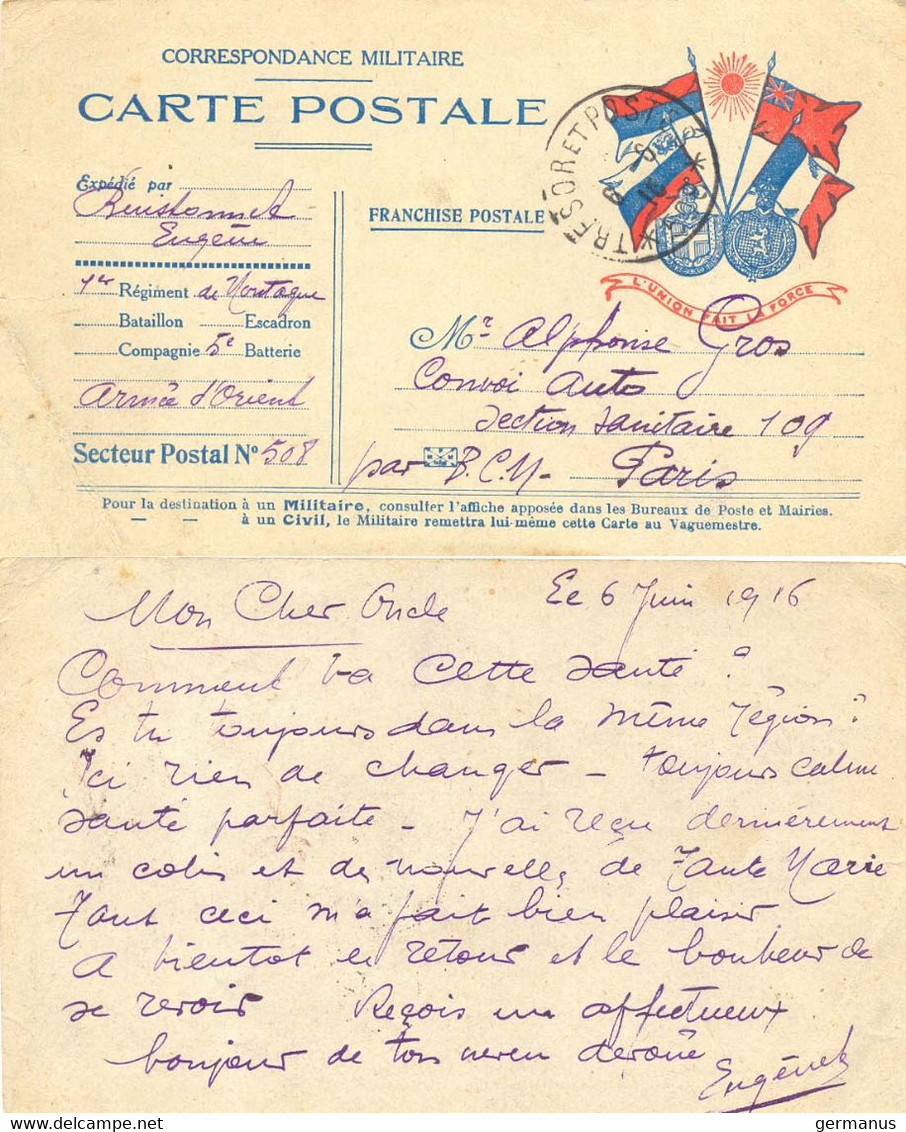 CORRESPONDANCE MILITAIRE
CARTE POSTALE
Expédié par
Eugène
FRANCHISE POSTALE
TRESOR ET POSTES
L'UNION FAIT LA FORCE
1er Régiment de Montagne
Bataillon Escadron
Compagnie 5e Batterie
Armée d'Orient
Secteur Postal No 508
Mr Alphonse Gros
Convoi Auto
Section Sanitaire 109
par B.C.M. Paris
Pour la destination à un Militaire, consulter l'affiche apposée dans les Bureaux de Poste et Mairies.
— — à un Civil, le Militaire remettra lui-même cette Carte au Vaguemestre.
Mon Cher Oncle Le 6 Juin 1916
Comment va cette santé ?
Es tu toujours dans la même région ?
Ici rien de changer - toujours calme
santé parfaite - J'ai reçu dernièrement
un colis et des nouvelles de Tante Marie
Tout ceci m'a fait bien plaisir
A bientot le retour et le bonheur de
se revoir Reçois un affectueux
bonjour de ton neveu dévoué
germanus